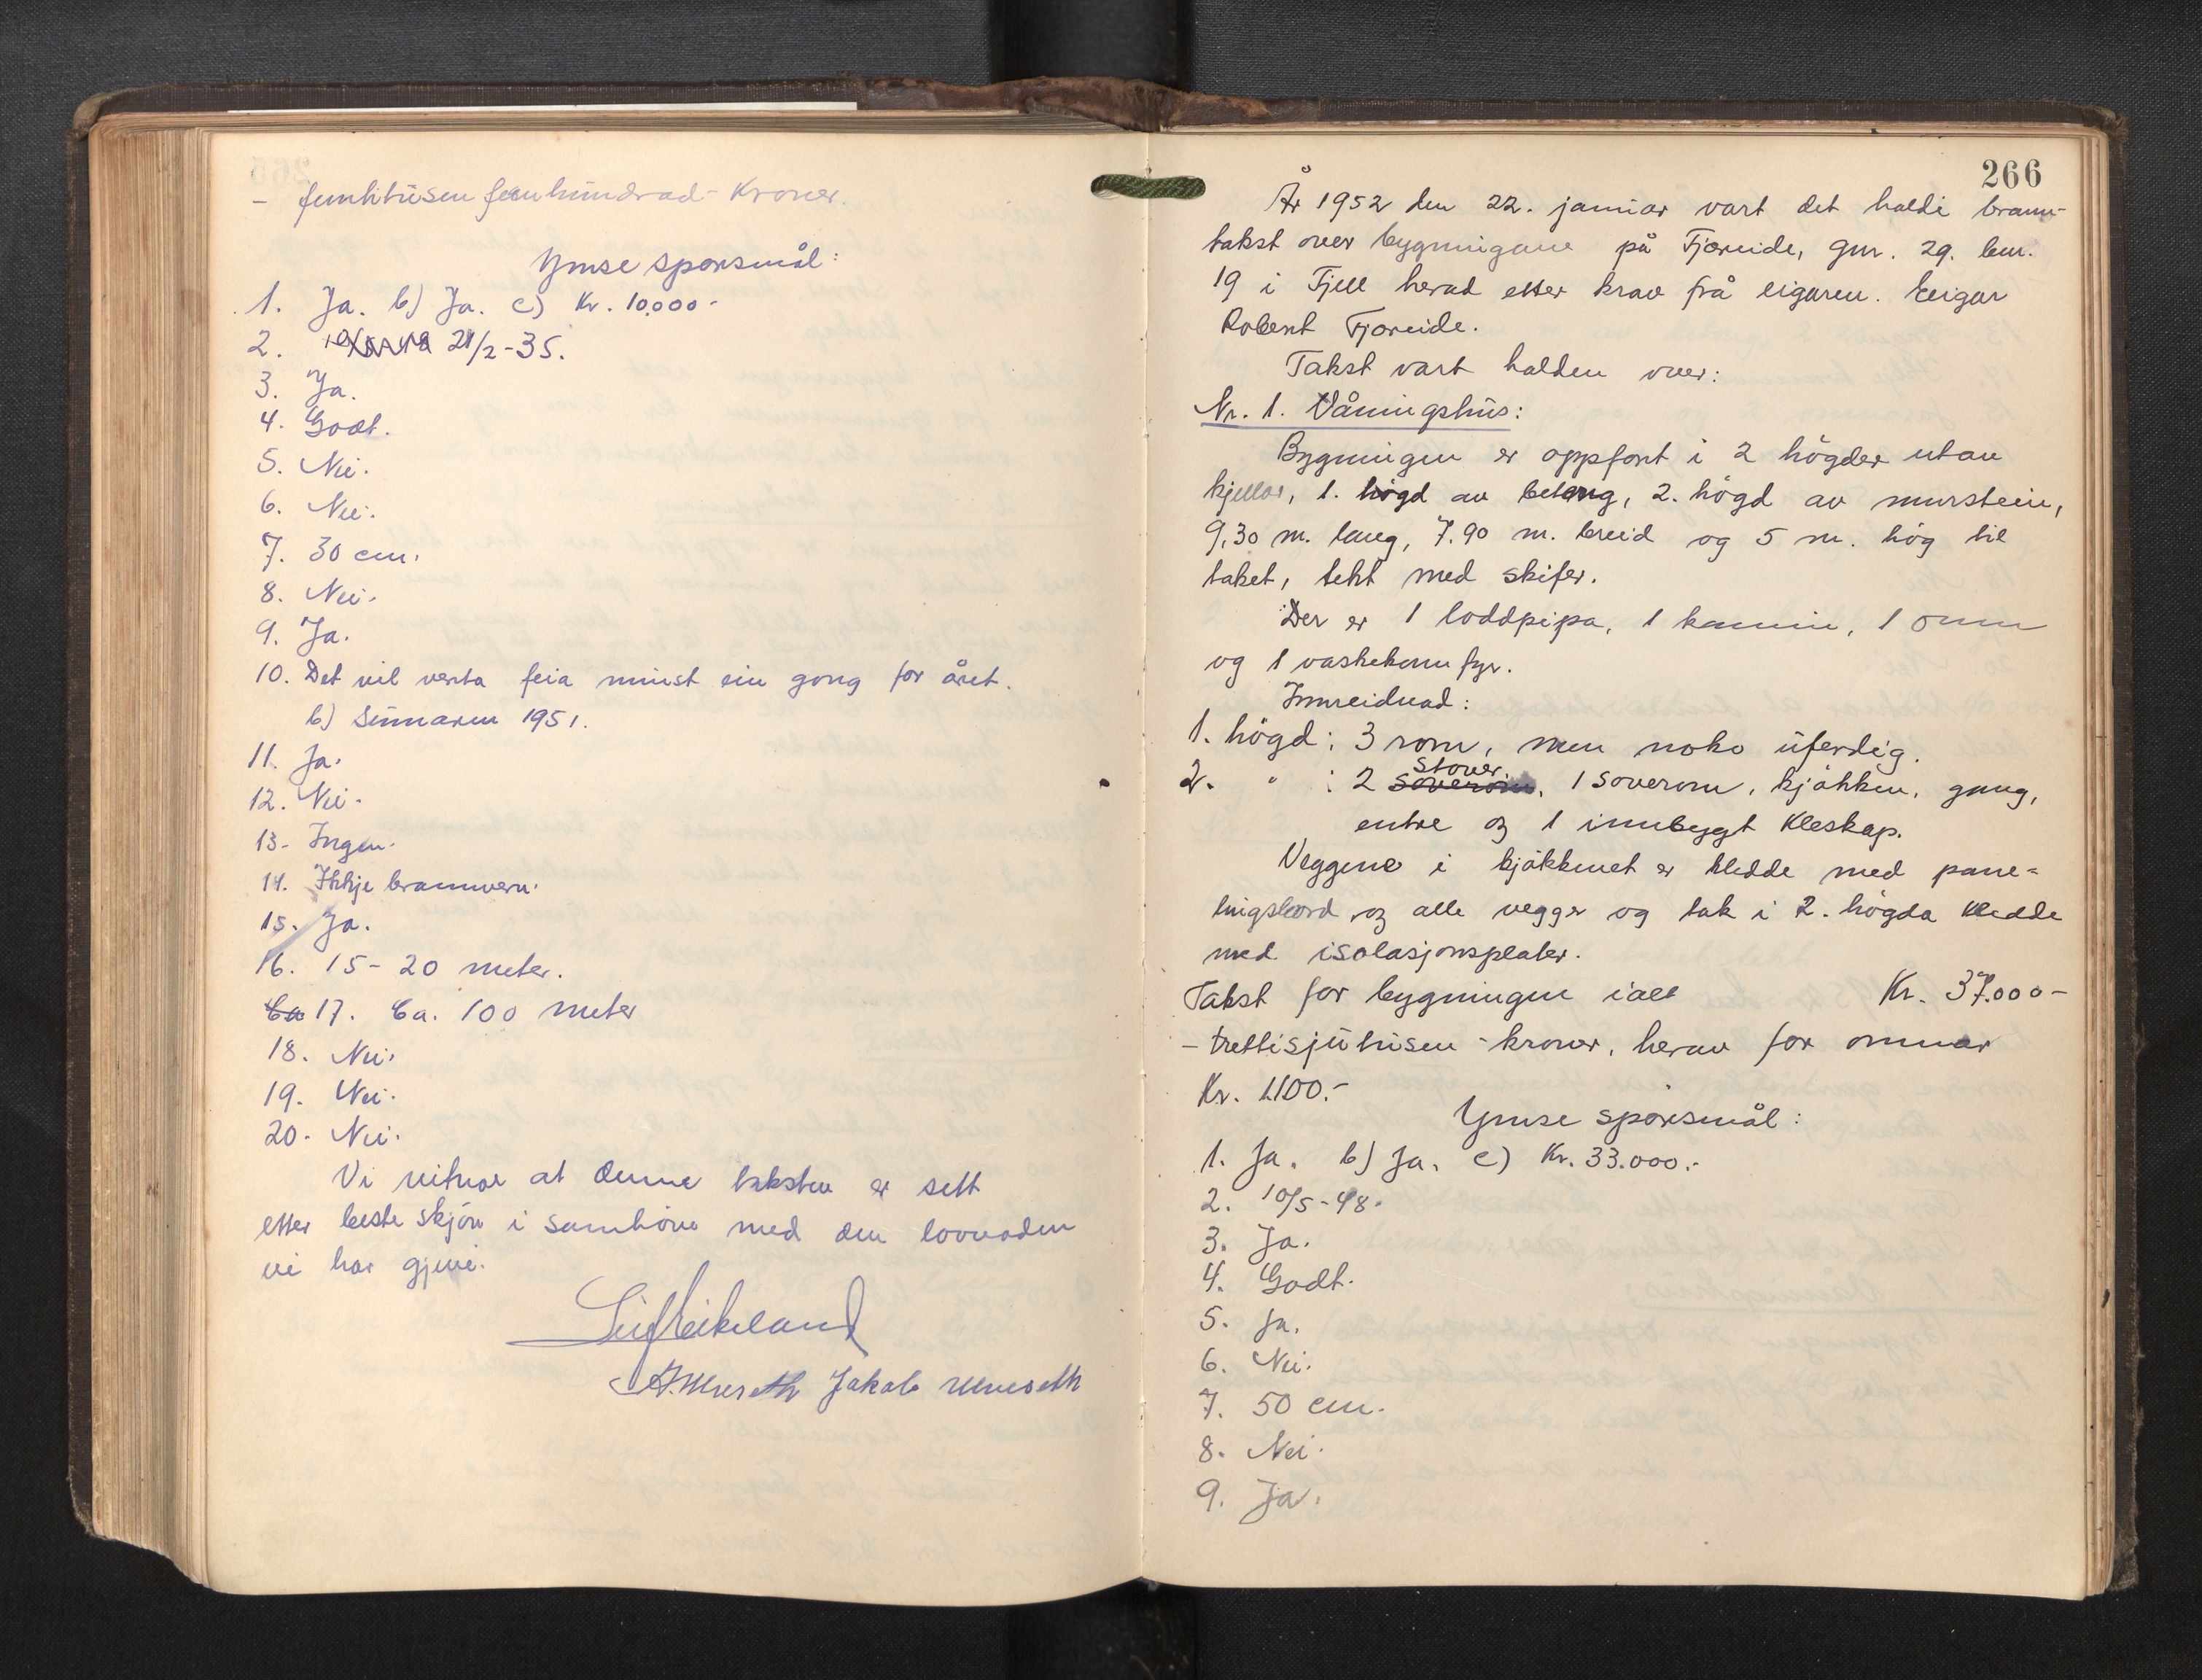 - femhtusen femhundrad - Kroner.
Ymse sporsmål:
1. Ja. b) Ja. c) Kr. 10.000-
2. 21/2-35.
3. Ja.
4. Godt.
5. Nei.
6. Nei.
7. 30 cm.
8. Nei.
9. Ja.
10. Det vil verta feia minst ein gong for året.
b) Sumaren 1951.
11. Ja.
12. Nei.
13. Ingen.
14. Ikkje brannvern.
15. Ja.
16. 15-20 meter.
Ca 17. Ca. 100 meter
18. Nei.
19. Nei.
20. Nei.
Vi vitnar at denne taksten er sett
etter beste skjön i samhöve med den lovnaden
vi har gjeve.
Leif Eikeland
Jakob
266
År 1952 den 22. januar vart det haldi brann-
takst over bygningane på Fjæreide, gnr. 29. bnr.
19 i Fjell herad etter krav frå eigaren. Eeigar
Robert Fjæreide.
Takst vart halden over:
Nr. 1. Våningshus:
Bygningen er oppfört i 2 högder utan
kjellar, 1. högd av betong, 2. högd av murstein,
9,30 m. lang, 7.90 m. breid og 5 m. hög til
taket, tekt med skifer.
Der er 1 loddpipa, 1 kamin, 1 omn
og 1 vaskekomfyr.
Innreidnad:
1. högd: 3 rom, men noko uferdig.
stover
2. " : 2 soverom, 1 soverom, kjökken, gang,
entre og 1 innbygt Kleskap.
Veggene i kjökkenet er kledde med pane-
lingsbord, og alle vegger og tak i 2. högda kledde
med isolasjonsplater.
Takst for bygningen ialt Kr. 37.000-
- trettisjutusen - kroner, herav for omnar
Kr. 1100.-
Ymse spörsmål:
1. Ja. b) Ja. c) Kr. 33.000.-
2. 10/5-48.
3. Ja.
4. Godt.
5. Ja.
6. Nei.
7. 50 cm.
8. Nei.
9. Ja.